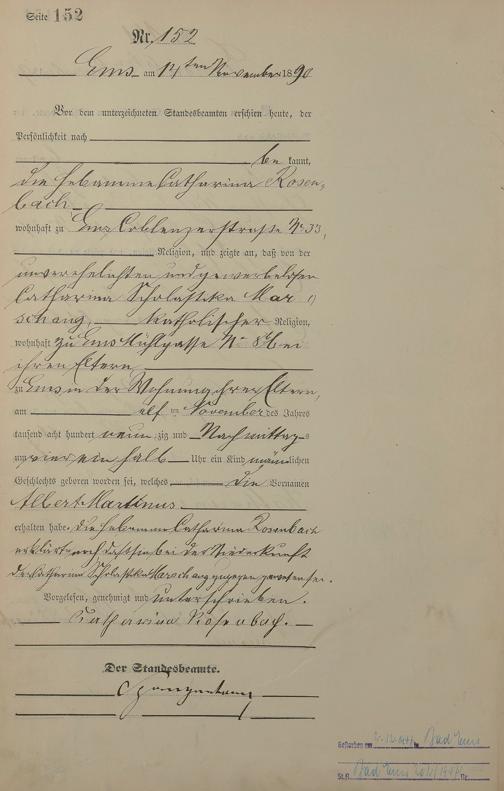 Seite 152
Nr. 152
Ems am 14ten November 1890
Vor dem unterzeichneten Standesbeamten erschien heute, der
Persönlichkeit nach
be kannt,
die Hebamme Catharina Rosen-
bach
wohnhaft zu Ems Coblenzerstraße No 33,
Religion, und zeigte an, daß von der
unverehelichten und gewerbelosen
Catharina Scholastika Mar
schang, katholischer Religion,
wohnhaft zu Ems Mühlgasse No bei
ihren Eltern
zu Ems in der Wohnung ihrer Eltern,
am elf ten November des Jahres
tausend acht hundert neun zig und Nachmittags
um vier ein halb Uhr ein Kind männlichen
Geschlechts geboren worden sei, welches die Vornamen
Albert Martinus
erhalten habe. Die Hebamme Catharina Rosenbach
erklärte noch daß sie bei der Niederkunft
der Catharina Scholastika Marschang zugegen gewesen sei.
Vorgelesen, genehmigt und unterschrieben.
Katharina Rosenbach.
Der Standesbeamte.
Gestorben am in Bad Ems
St.A. Bad Ems Nr.